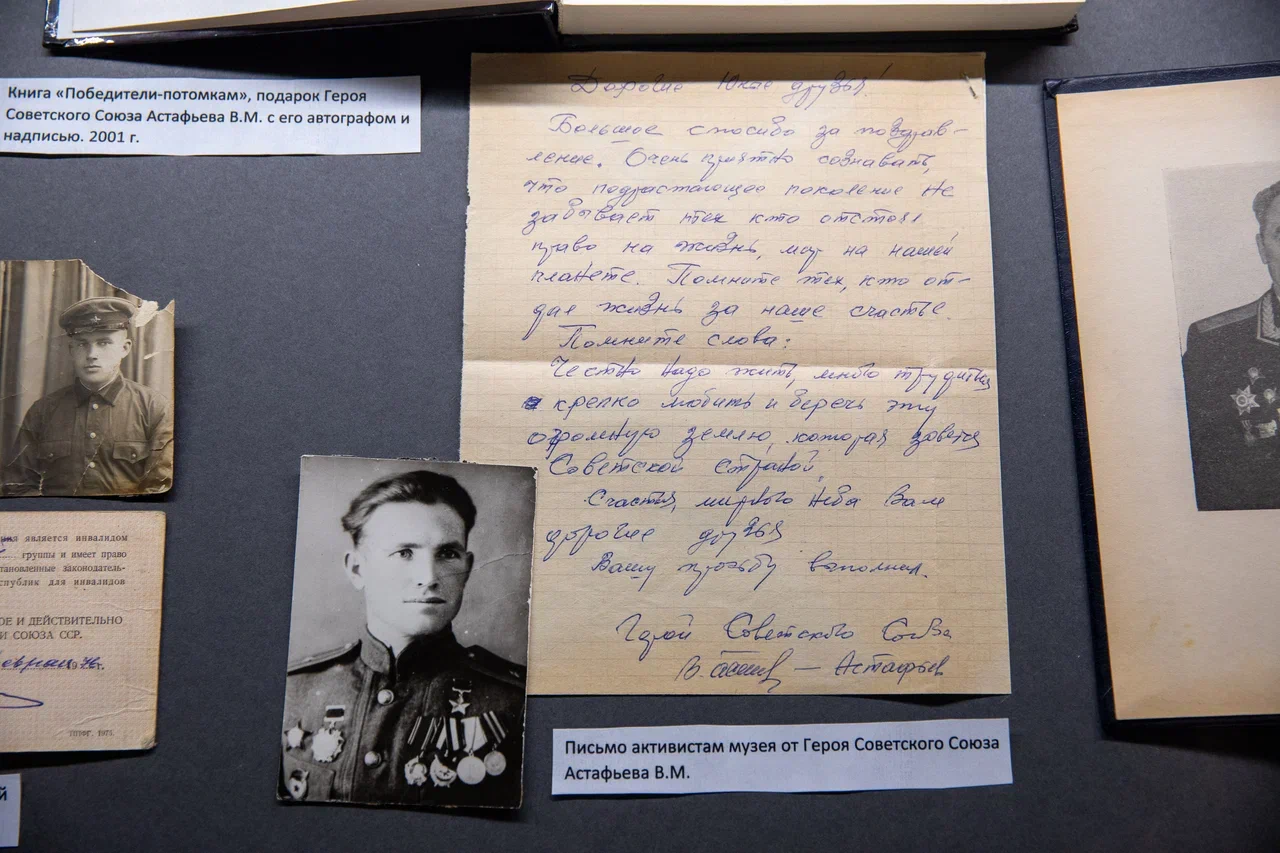 Книга «Победители-потомкам», подарок Героя
Советского Союза Астафьева В.М. с его автографом и
надписью. 2001 г.
Дорогие Юные друзья!
Большое спасибо за поздрав-
ление. Очень приятно сознавать,
что подрастающее поколение не
забывает тех кто отстоял
право на жизнь, мир на нашей
планете. Помните тех, кто от-
дал жизнь за наше счастье.
Помните слова:
Честно надо жить, много трудиться
крепко любить и беречь эту
огромную землю, которая зовется
Советской Страной.
Счастья, мирного Неба Вам
дорогие друзья
Вашу просьбу выполнил.
Герой Советского Союза
В. — Астафьев
ния является инвалидом
группы и имеет право
тановленные законодатель-
спублик для инвалидов
ОЕ И ДЕЙСТВИТЕЛЬНО
И СОЮЗА ССР.
евраля 1976 г.
1975.
й
Письмо активистам музея от Героя Советского Союза
Астафьева В.М.